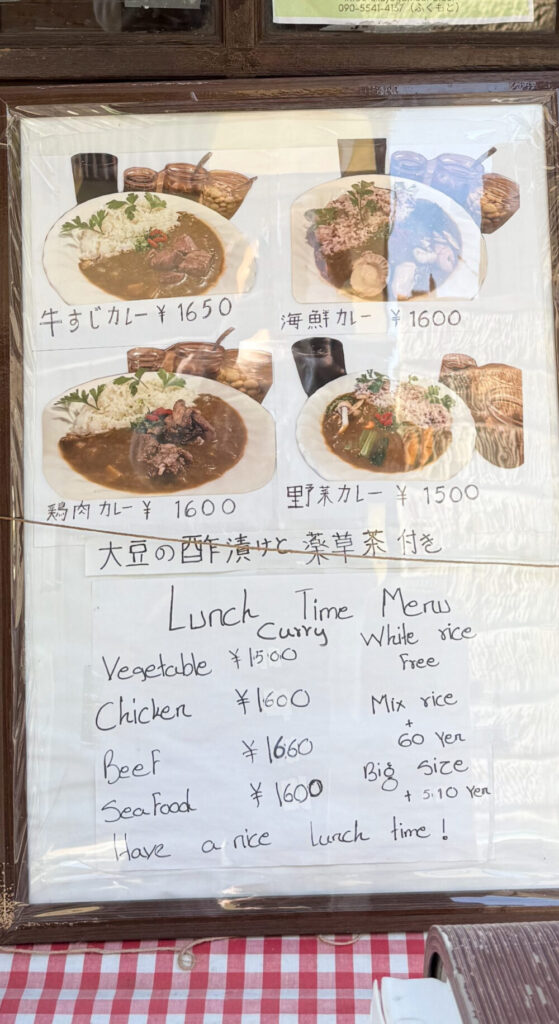 090-5541-4157 (ふくもと)
牛すじカレー ¥ 1650
海鮮カレー ¥ 1600
鶏肉カレー ¥ 1600
野菜カレー ¥ 1500
大豆の酢漬けと 薬草茶 付き
Lunch Time Menu
Curry
White rice
Free
Vegetable ¥1500
Chicken ¥1600
Mix rice
+
60 Yen
Beef ¥1660
Big Size
+ 510 Yen
Seafood ¥1600
Have a nice lunch time!